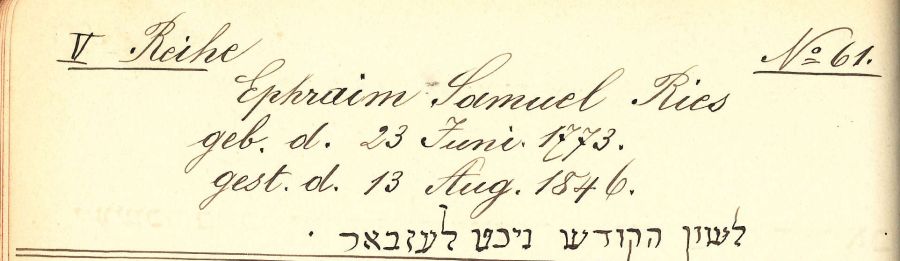 V Reihe No 61.
Ephraim Samuel Ries
geb. d. 23 Juni. 1773.
gest. d. 13 Aug. 1846.
לשון הקודש ניכט לעזבאר .